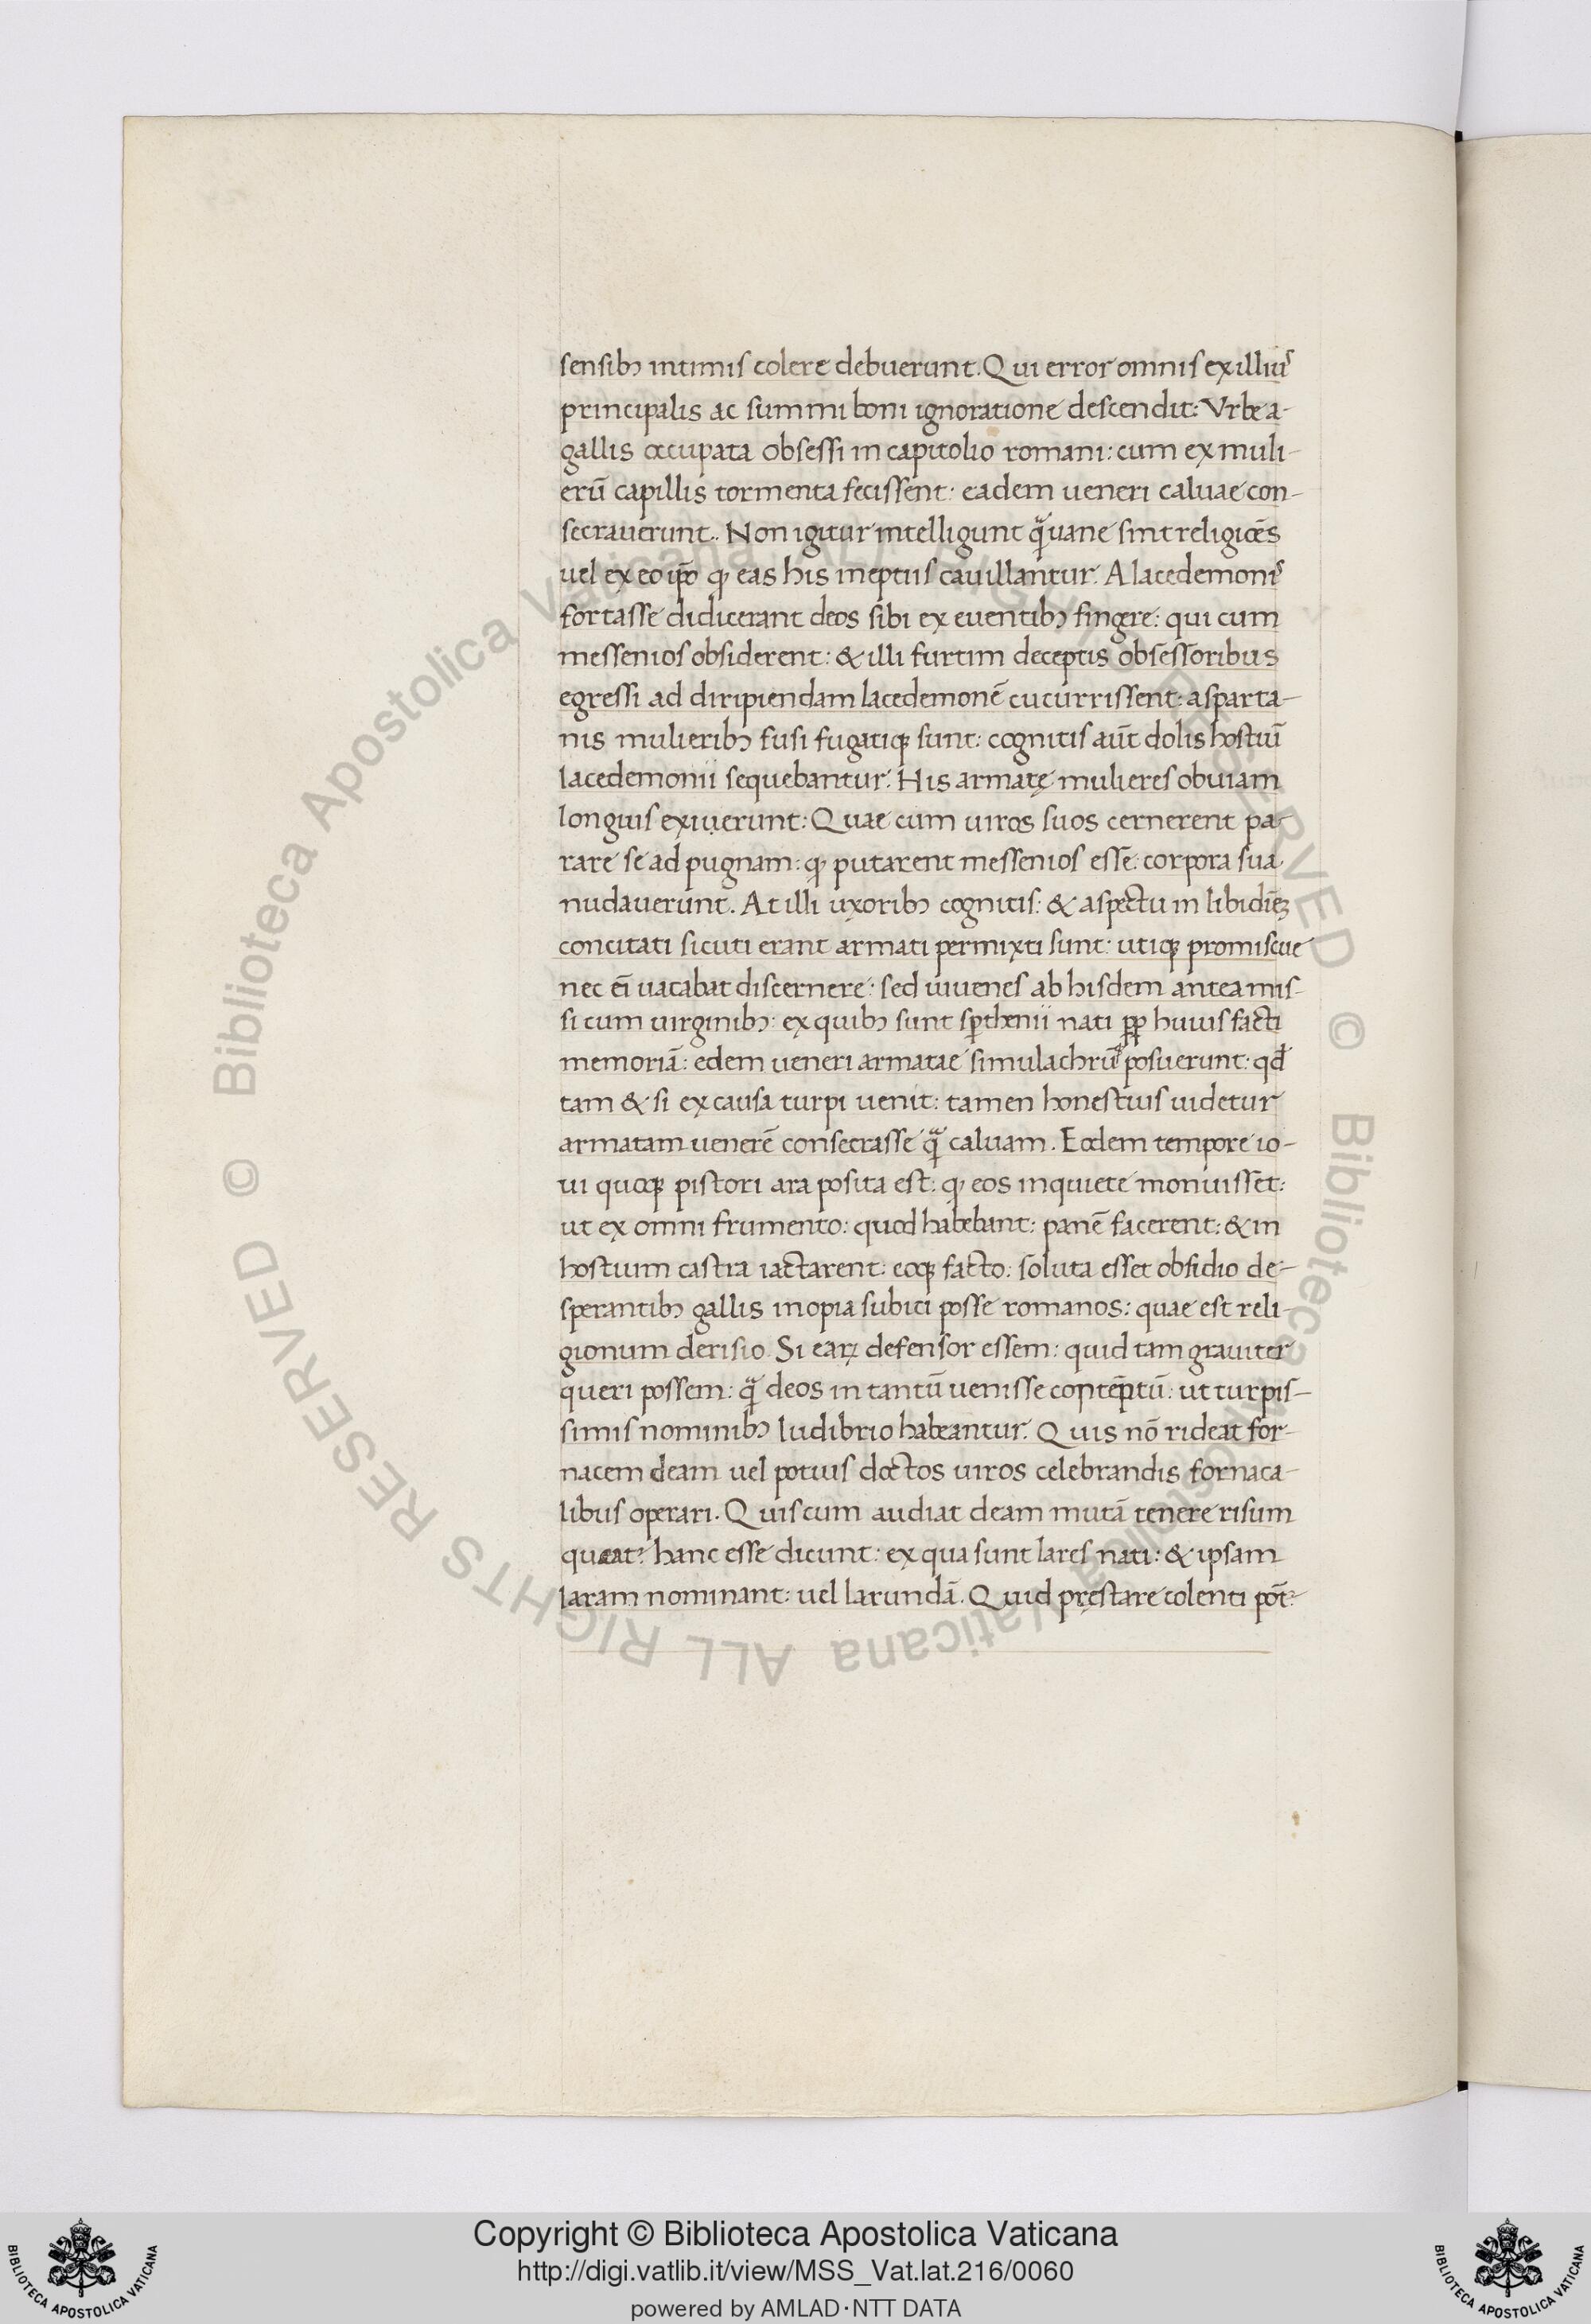 sensibꝫ intimis colere debuerunt. Qui error omnis ex illiuˢ
principalis ac summi boni ignoratione descendit: Vrbe a-
gallis occupata obsessi in capitolio romani: cum ex muli-
erū capillis tormenta fecissent: eadem ueneri caluae con-
secrauerunt. Non igitur intelligunt qͣ̄ uane sint religiōes
uel ex eo ip̄o ꝙ eas his ineptiis cauillantur. A lacedemoniˢ
fortasse didicerant deos sibi ex euentibꝫ fingere: qui cum
messenios obsiderent: & illi furtim deceptis obsessoribus
egressi ad diripiendam lacedemonē cucurrissent: a sparta-
nis mulieribꝫ fusi fugatiqꝫ sunt: cognitis aūt dolis hostiū
lacedemonii sequebantur. His armatę mulieres obuiam
longius exiuerunt: Quae cum uiros suos cernerent pa-
rare se ad pugnam: ꝙ putarent messenios esse: corpora sua
nudauerunt. At illi uxoribꝫ cognitis: & aspectu in libidīeꝫ
concitati sicuti erant armati permixti sunt: utiqꝫ promiscue
nec eī uacabat discernere: sed iuuenes ab hisdem antea mis-
si cum uirginibꝫ: ex quibꝫ sunt sꝑthenii nati ꝓp̄ huius facti
memoriā: edem ueneri armatae simulachrūqꝫ posuerunt: qđ
tam & si ex causa turpi uenit: tamen honestius uidetur
armatam uenerē consecrasse qͣ̄ caluam. Eodem tempore io-
ui quoqꝫ pistori ara posita est: ꝙ eos in quiete monuisset:
ut ex omni frumento: quod habebant: panē facerent: & in
hostium castra iactarent: eoqꝫ facto: soluta esset obsidio de-
sperantibꝫ gallis inopia subici posse romanos: quae est reli-
gionum derisio. Si eaꝝ defensor essem: quid tam grauiter
queri possem: qͣ̄ deos in tantū uenisse contēptū: ut turpis-
simis nominibꝫ ludibrio habeantur. Quis nō rideat for-
nacem deam uel potius doctos uiros celebrandis fornaca-
libus operari. Quis cum audiat deam mutā tenere risum
queat? hanc esse dicunt: ex qua sunt lares nati: & ipsam
laram nominant: uel larundā. Quid pręstare colenti pōt:
© Biblioteca Apostolica Vaticana ALL RIGHTS RESERVED © Biblioteca Apostolica Vaticana ALL RIGHTS RESERVED
Copyright © Biblioteca Apostolica Vaticana
http://digi.vatlib.it/view/MSS_Vat.lat.216/0060
powered by AMLAD·NTT DATA
BIBLIOTECA APOSTOLICA VATICANA
BIBLIOTECA APOSTOLICA VATICANA